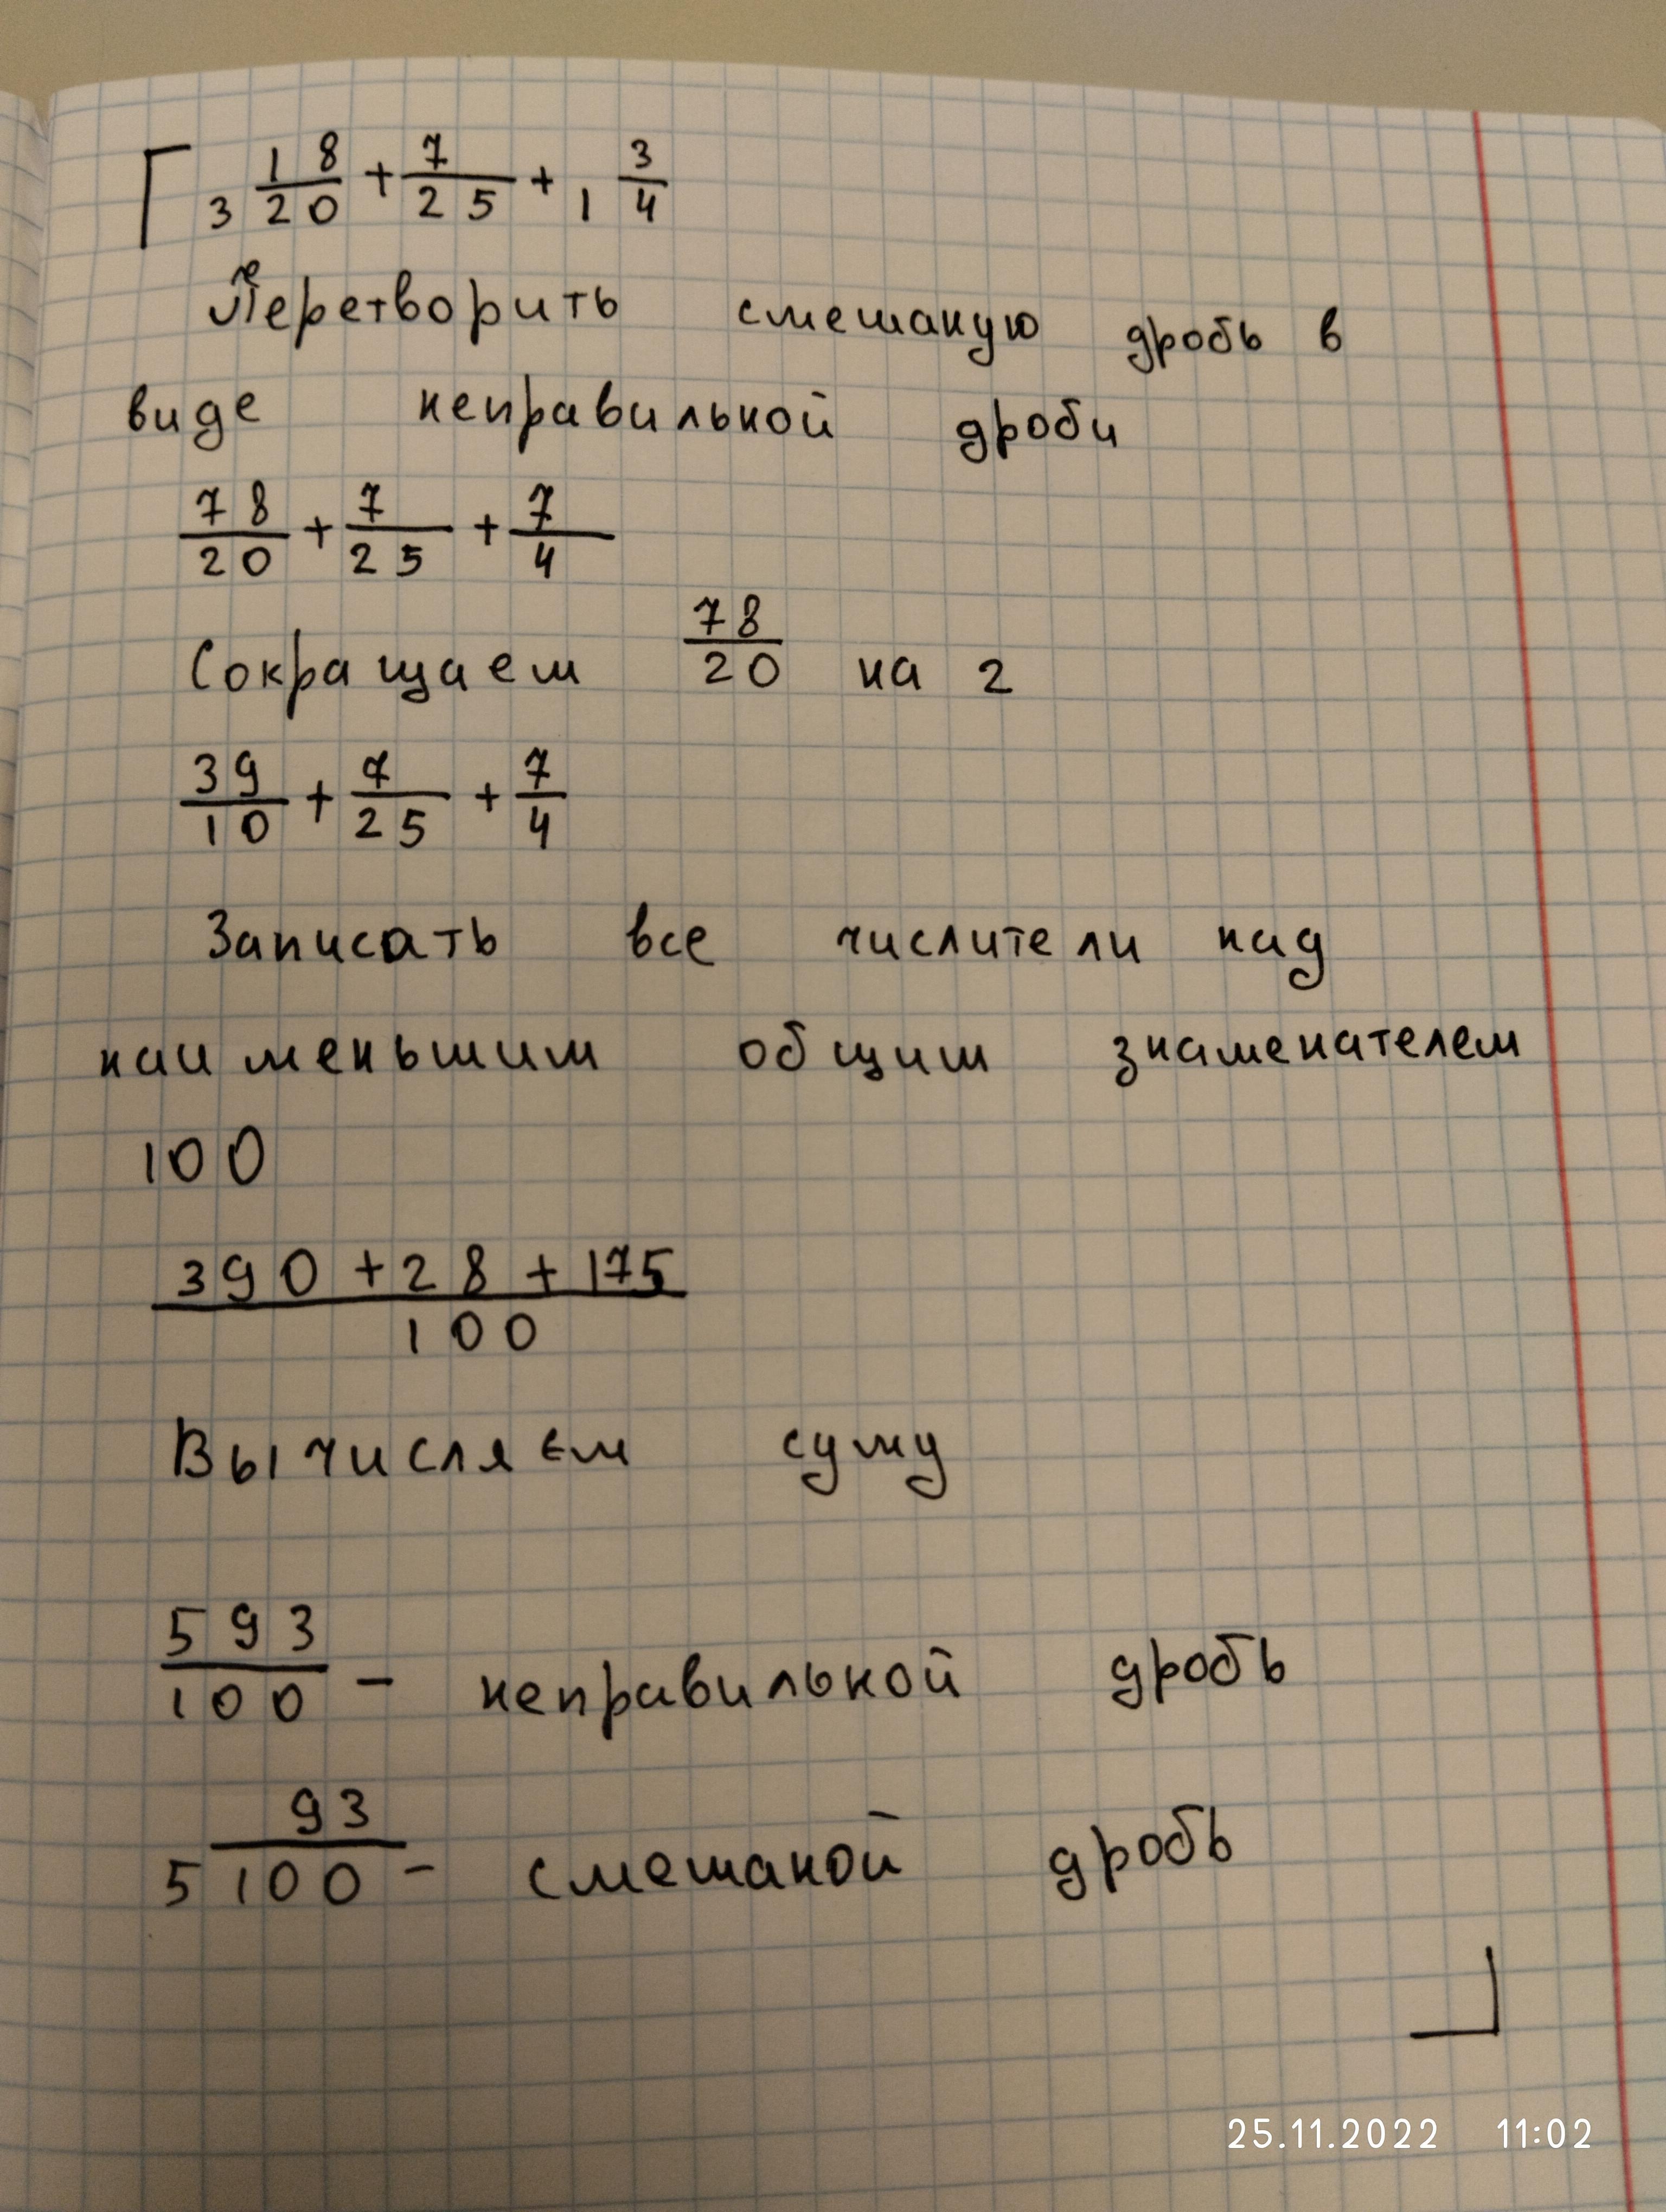 3 18/20 + 7/25 + 1 3/4
Перетворить смешаную дробь в
виде неправильной дроби
78/20 + 7/25 + 7/4
Сокращаем 78/20 на 2
39/10 + 7/25 + 7/4
Записать все числители над
наименьшим общим знаменателем
100
390 + 28 + 175 / 100
Вычисляем суму
593/100 - неправильной дробь
5 93/100 - смешаной дробь
25.11.2022 11:02